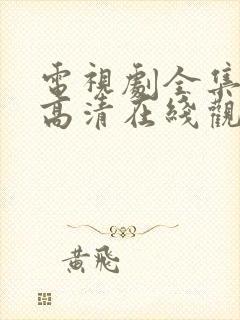 電視劇全集
高清在綫觀
黃飛